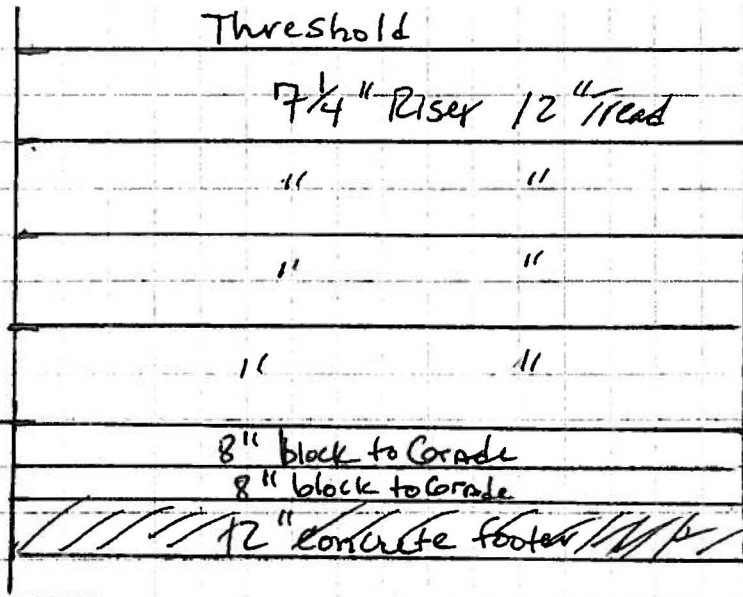 Threshold
7 1/4" Riser 12" Tread
" "
" "
" "
8" block to Grade
8" block to Grade
12" concrete footer